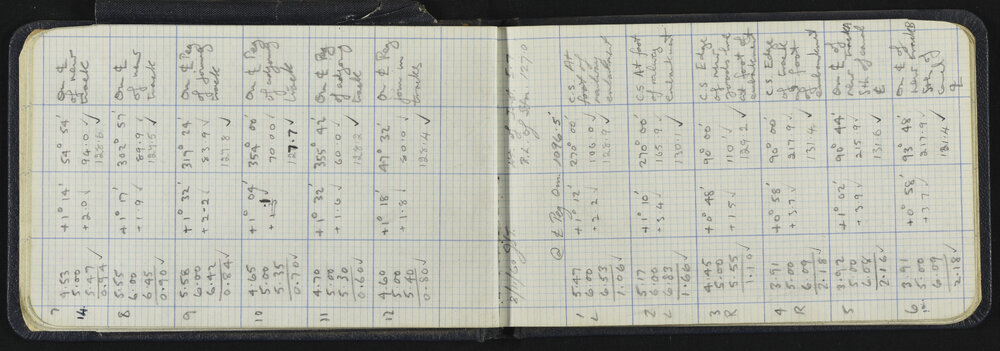 7 4.53 +1° 14' 54° 54' On ℄
5.00 +2.0 ✓ 94.0 ✓ of new
14 5.47 128.6 track
0.94 ✓
8 5.55 +1° 17' 302° 57' On ℄
6.00 +1.9 ✓ 89.9 ✓ of new
6.45 127.5 ✓ track
0.90 ✓
9 5.58 +1° 32' 319° 24' On ℄ Peg
6.00 +2.2 ✓ 83.9 ✓ of joining
6.42 127.8 track
0.84 ✓
10 4.65 +1° 04' 354° 00' On ℄ Peg
5.00 70.00 ✓ of adjoing
5.35 127.7 ✓ track
0.70 ✓
11 4.70 +1° 32' 355° 42' On ℄ Peg
5.00 +1.6 ✓ 60.0 ✓ of adjoing
5.30 128.2 ✓ track
0.60 ✓
12 4.60 +1° 18' 47° 32' On ℄ Peg
5.00 +1.8 ✓ 80.0 ✓ join in
5.40 128.4 ✓ tracks
0.80 ✓
R.L of Stn 127.0
@ ℄ Peg Om 1096.5
1 5.47 +1° 12' 270° 00' C.S At
L 6.00 +2.2 ✓ 106.0 ✓ foot of
6.53 128.9 ✓ railway
1.06 ✓ embankment
2 5.17 +1° 10' 270° 00' C.S At foot
L 6.00 +3.4 ✓ 165.9 ✓ of railway
6.83 130.1 ✓ embankment
1.66 ✓
3 4.45 +0° 48' 90° 00' C.S Edge
R 5.00 +1.5 ✓ 110 ✓ of new
5.55 129.2 ✓ goods line
1.10 ✓ at foot of
embankment
4 3.91 +0° 58' 90° 00' C.S Edge
R 5.00 +3.7 ✓ 217.9 ✓ of track
6.09 131.4 ✓ foot
2.18 ✓ of
embankment
5 3.92 +1° 02' 90° 44' On ℄ of
5.00 +3.9 ✓ 215.9 ✓ new track
6.08 131.6 ✓ Sth of canal
2.16 ✓ ℄
6 3.91 +0° 58' 93° 48' On ℄ of
5.00 +3.7 ✓ 217.9 ✓ new track
6.09 131.4 ✓ Sth of
2.18 ✓ canal
℄